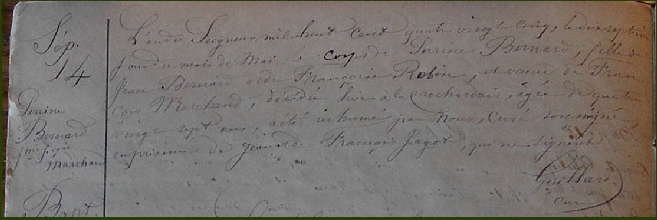 Sép.
14
Perrine
Bernard
Marchand
L'an du Seigneur mil huit cent quatre vingt cinq, le dix septième
jour du mois de Mai, corps de Perrine Bernard, fille de
Jean Bernard et de Françoise Robin, et veuve de Fran
çois Marchand, décédée hier à la Rochardais, âgée de quatre
vingt sept ans, a été inhumé par Nous, Curé soussigné
en présence de François Jagot, qui ne signent
Guillard
Curé
Bapt